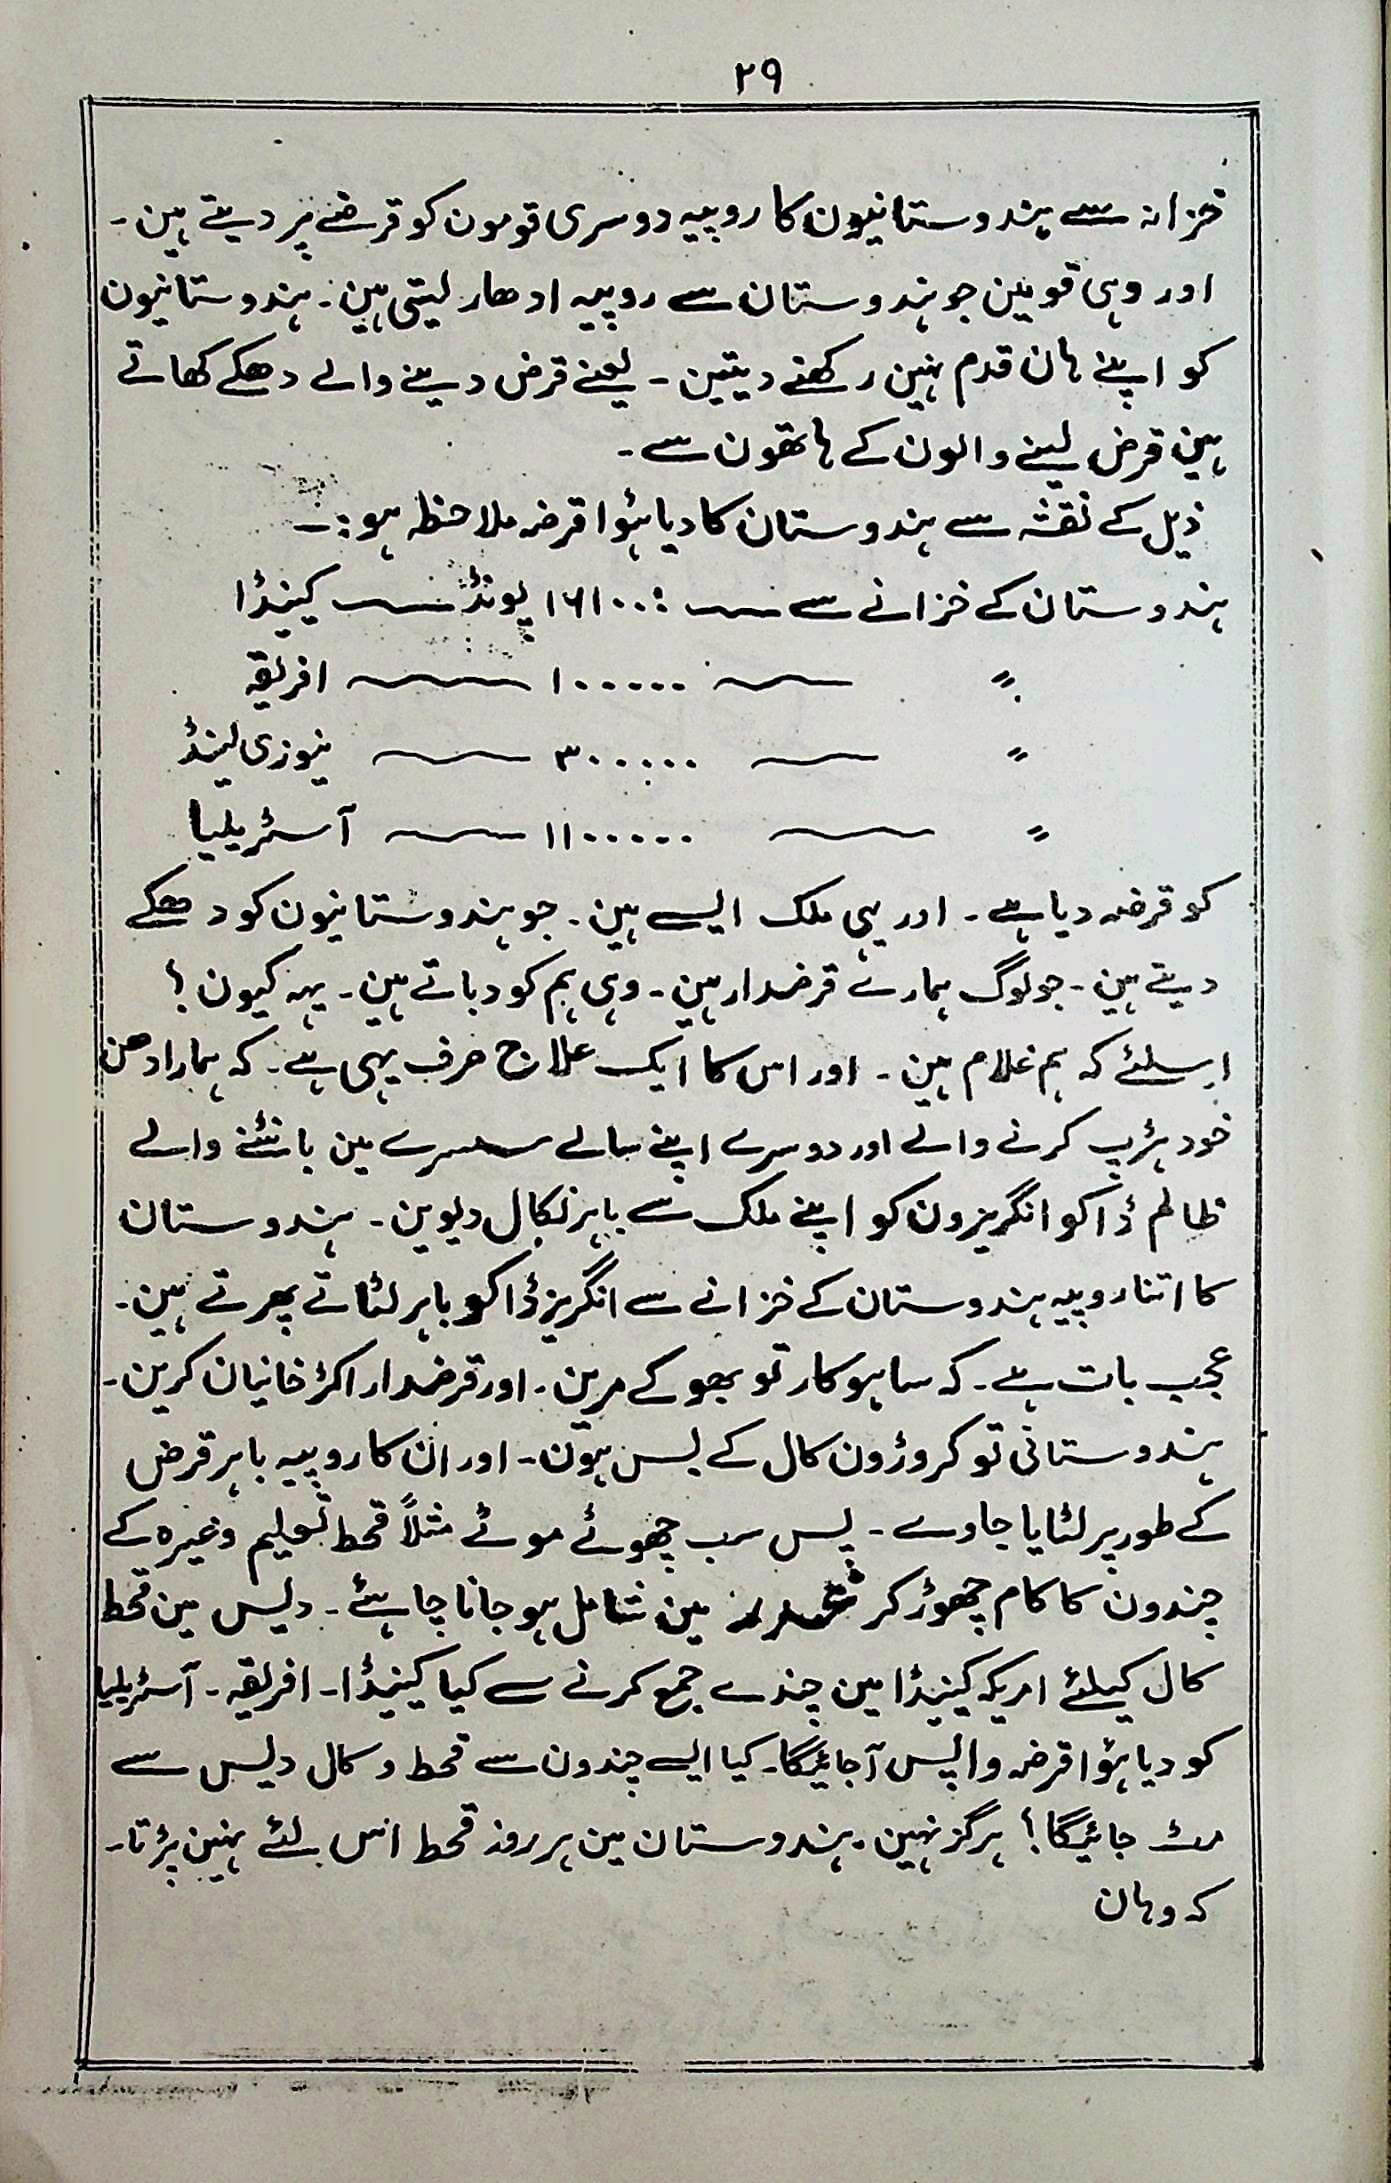 ۲۹
خزانہ سے ہندوستانیون کا روپیہ دوسری قومون کو قرضے پر دیتے ہین۔
اور وہی قومین جو ہندوستان سے روپیہ ادھار لیتی ہین۔ ہندوستانیون
کو اپنے ہان قدم نہین رکھنے دیتین۔ یعنے قرض دینے والے دھکے کھاتے
ہین قرض لینے والون کے ہاتھون سے۔
ذیل کے نقشہ سے ہندوستان کا دیا ہؤا قرضہ ملاحظہ ہو:۔
ہندوستان کے خزانے سے — پونڈ — کینڈا
〃 — ۱۰۰۰۰۰ — افریقہ
〃 — ۳۰۰۰۰۰ — نیوزی لینڈ
〃 — ۱۱۰۰۰۰۰ — آسٹریلیا
کو قرضہ دیا ہے۔ اور یہی ملک ایسے ہین۔ جو ہندوستانیون کو دھکے
دیتے ہین۔ جو لوگ ہمارے قرضدار ہین۔ وہی ہم کو دباتے ہین۔ یہہ کیون؟
اسلئے کہ ہم غلام ہین۔ اور اس کا ایک علاج صرف یہی ہے۔ کہ ہمارا دھن
خود ہڑپ کرنے والے اور دوسرے اپنے سالے سسرے مین بانٹنے والے
ظالم ڈاکو انگریزون کو اپنے ملک سے باہر نکال دیوین۔ ہندوستان
کا اتنا روپیہ ہندوستان کے خزانے سے انگریز ڈاکو باہر لٹاتے پھرتے ہین۔
عجب بات ہے۔ کہ ساہوکار تو بھوکے مرین۔ اور قرضدار اکڑخانیان کرین۔
ہندوستانی تو کروڑون کال کے بس ہون۔ اور ان کا روپیہ باہر قرض
کے طور پر لٹایا جاوے۔ پس سب چھوٹے موٹے مثلاً قحط تعلیم وغیرہ کے
چندون کا کام چھوڑ کر مین شامل ہو جانا چاہئے۔ دیس مین قحط
کال کیلئے امریکہ کینیڈا مین چندے جمع کرنے سے کیا کینیڈا۔ افریقہ۔ آسٹریلیا
کو دیا ہؤا قرضہ واپس آجائیگا۔ کیا ایسے چندون سے قحط و کال دیس سے
مٹ جائیگا؟ ہرگز نہین۔ ہندوستان مین ہر روز قحط اس لئے نہین پڑتا۔
کہ وہان